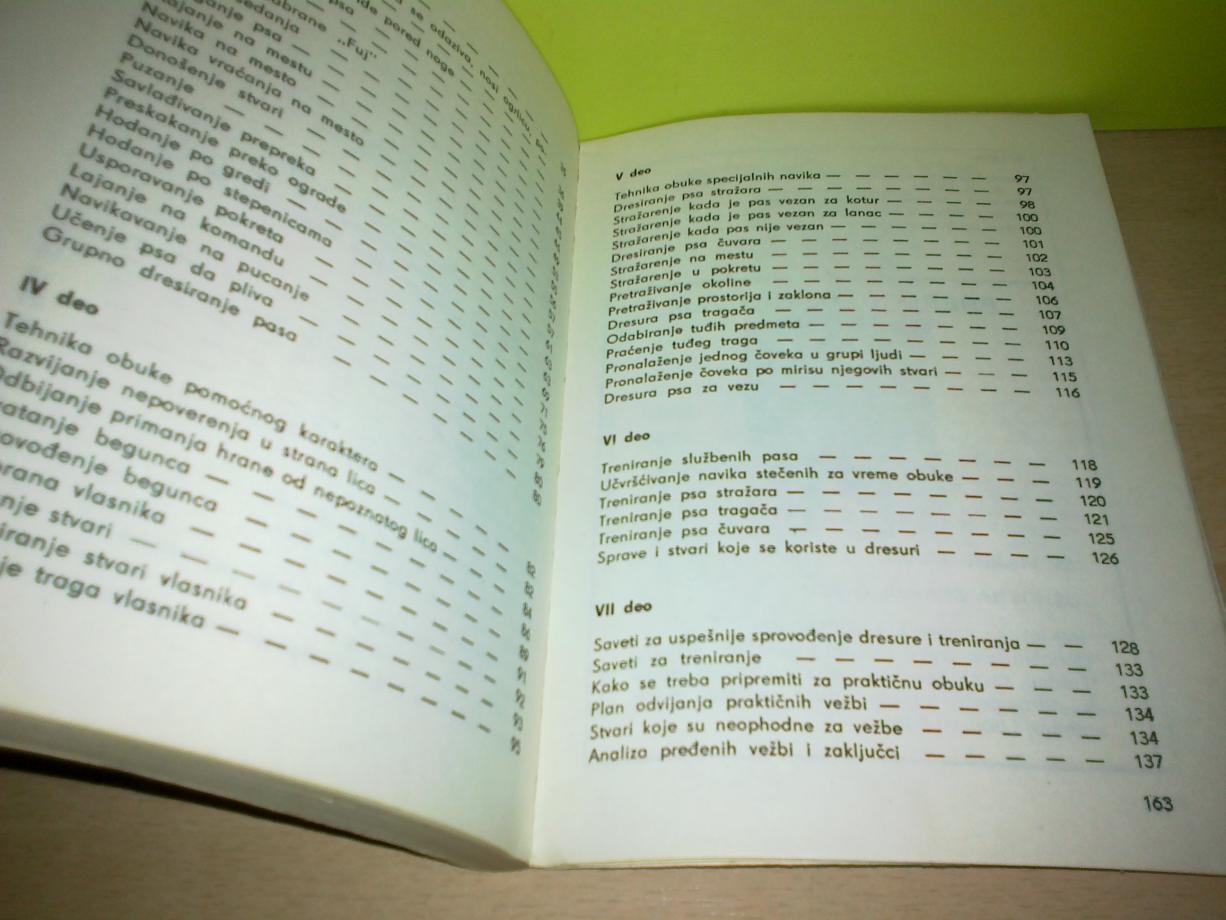 se odaziva, nosi ogrlicu,
pored noge — — — — —
„Fuj" — — — — —
psa — — — — —
na mestu — — — — —
Navika na mesto — — — — —
Navika vraćanja na mesto — — — — —
Donošenje stvari — — — — —
Puzanje — — — — —
Savlađivanje prepreka — — — — —
Preskakanje preko ograde — — — — —
Hodanje po gredi — — — — —
Hodanje po stepenicama — — — — —
Usporavanje pokreta — — — — —
Lajanje na komandu — — — — —
Navikavanje na pucanje — — — — —
Učenje psa da pliva — — — — —
Grupno dresiranje pasa — — — — — 80
IV deo
Tehnika obuke pomoćnog karaktera — — — — 82
Razvijanje nepoverenja u strana lica — — — — 82
Odbijanje primanja hrane od nepoznatog lica — 84
begunca — — — — — — 86
begunca — — — — — — 89
vlasnika — — — — — — 91
stvari — — — — — — 92
stvari vlasnika — — — — — — 93
traga vlasnika — — — — — — 95
V deo
Tehnika obuke specijalnih navika — — — — — — 97
Dresiranje psa stražara — — — — — — — 97
Stražarenje kada je pas vezan za kotur — — — — 98
Stražarenje kada je pas vezan za lanac — — — — 100
Stražarenje kada pas nije vezan — — — — — 100
Dresiranje psa čuvara — — — — — — — 101
Stražarenje na mestu — — — — — — — 102
Stražarenje u pokretu — — — — — — — 103
Pretraživanje okoline — — — — — — — 104
Pretraživanje prostorija i zaklona — — — — — — 106
Dresura psa tragača — — — — — — — 107
Odabiranje tuđih predmeta — — — — — — 109
Praćenje tuđeg traga — — — — — — — 110
Pronalaženje jednog čoveka u grupi ljudi — — — — 113
Pronalaženje čoveka po mirisu njegovih stvari — — — 115
Dresura psa za vezu — — — — — — — 116
VI deo
Treniranje službenih pasa — — — — — — — 118
Učvršćivanje navika stečenih za vreme obuke — — — 119
Treniranje psa stražara — — — — — — — 120
Treniranje psa tragača — — — — — — — 121
Treniranje psa čuvara — — — — — — — 125
Sprave i stvari koje se koriste u dresuri — — — — 126
VII deo
Saveti za uspešnije sprovođenje dresure i treniranja — — 128
Saveti za treniranje — — — — — — — 133
Kako se treba pripremiti za praktičnu obuku — — — 133
Plan odvijanja praktičnih vežbi — — — — — — 134
Stvari koje su neophodne za vežbe — — — — — 134
Analiza pređenih vežbi i zaključci — — — — — 137
163